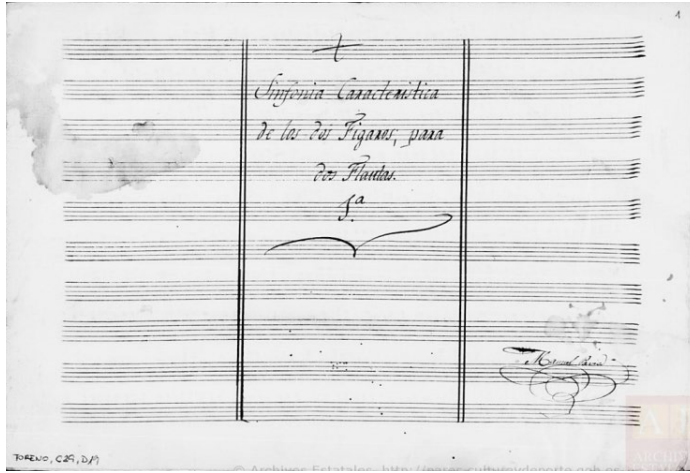 1
Sinfonia Caracteristica
de los dos Figaros, para
dos Flautas.
1ª
Manuel
TORENO, C29, D19
© Archivos Estatales, http://pares.culturaydeporte.gob.es